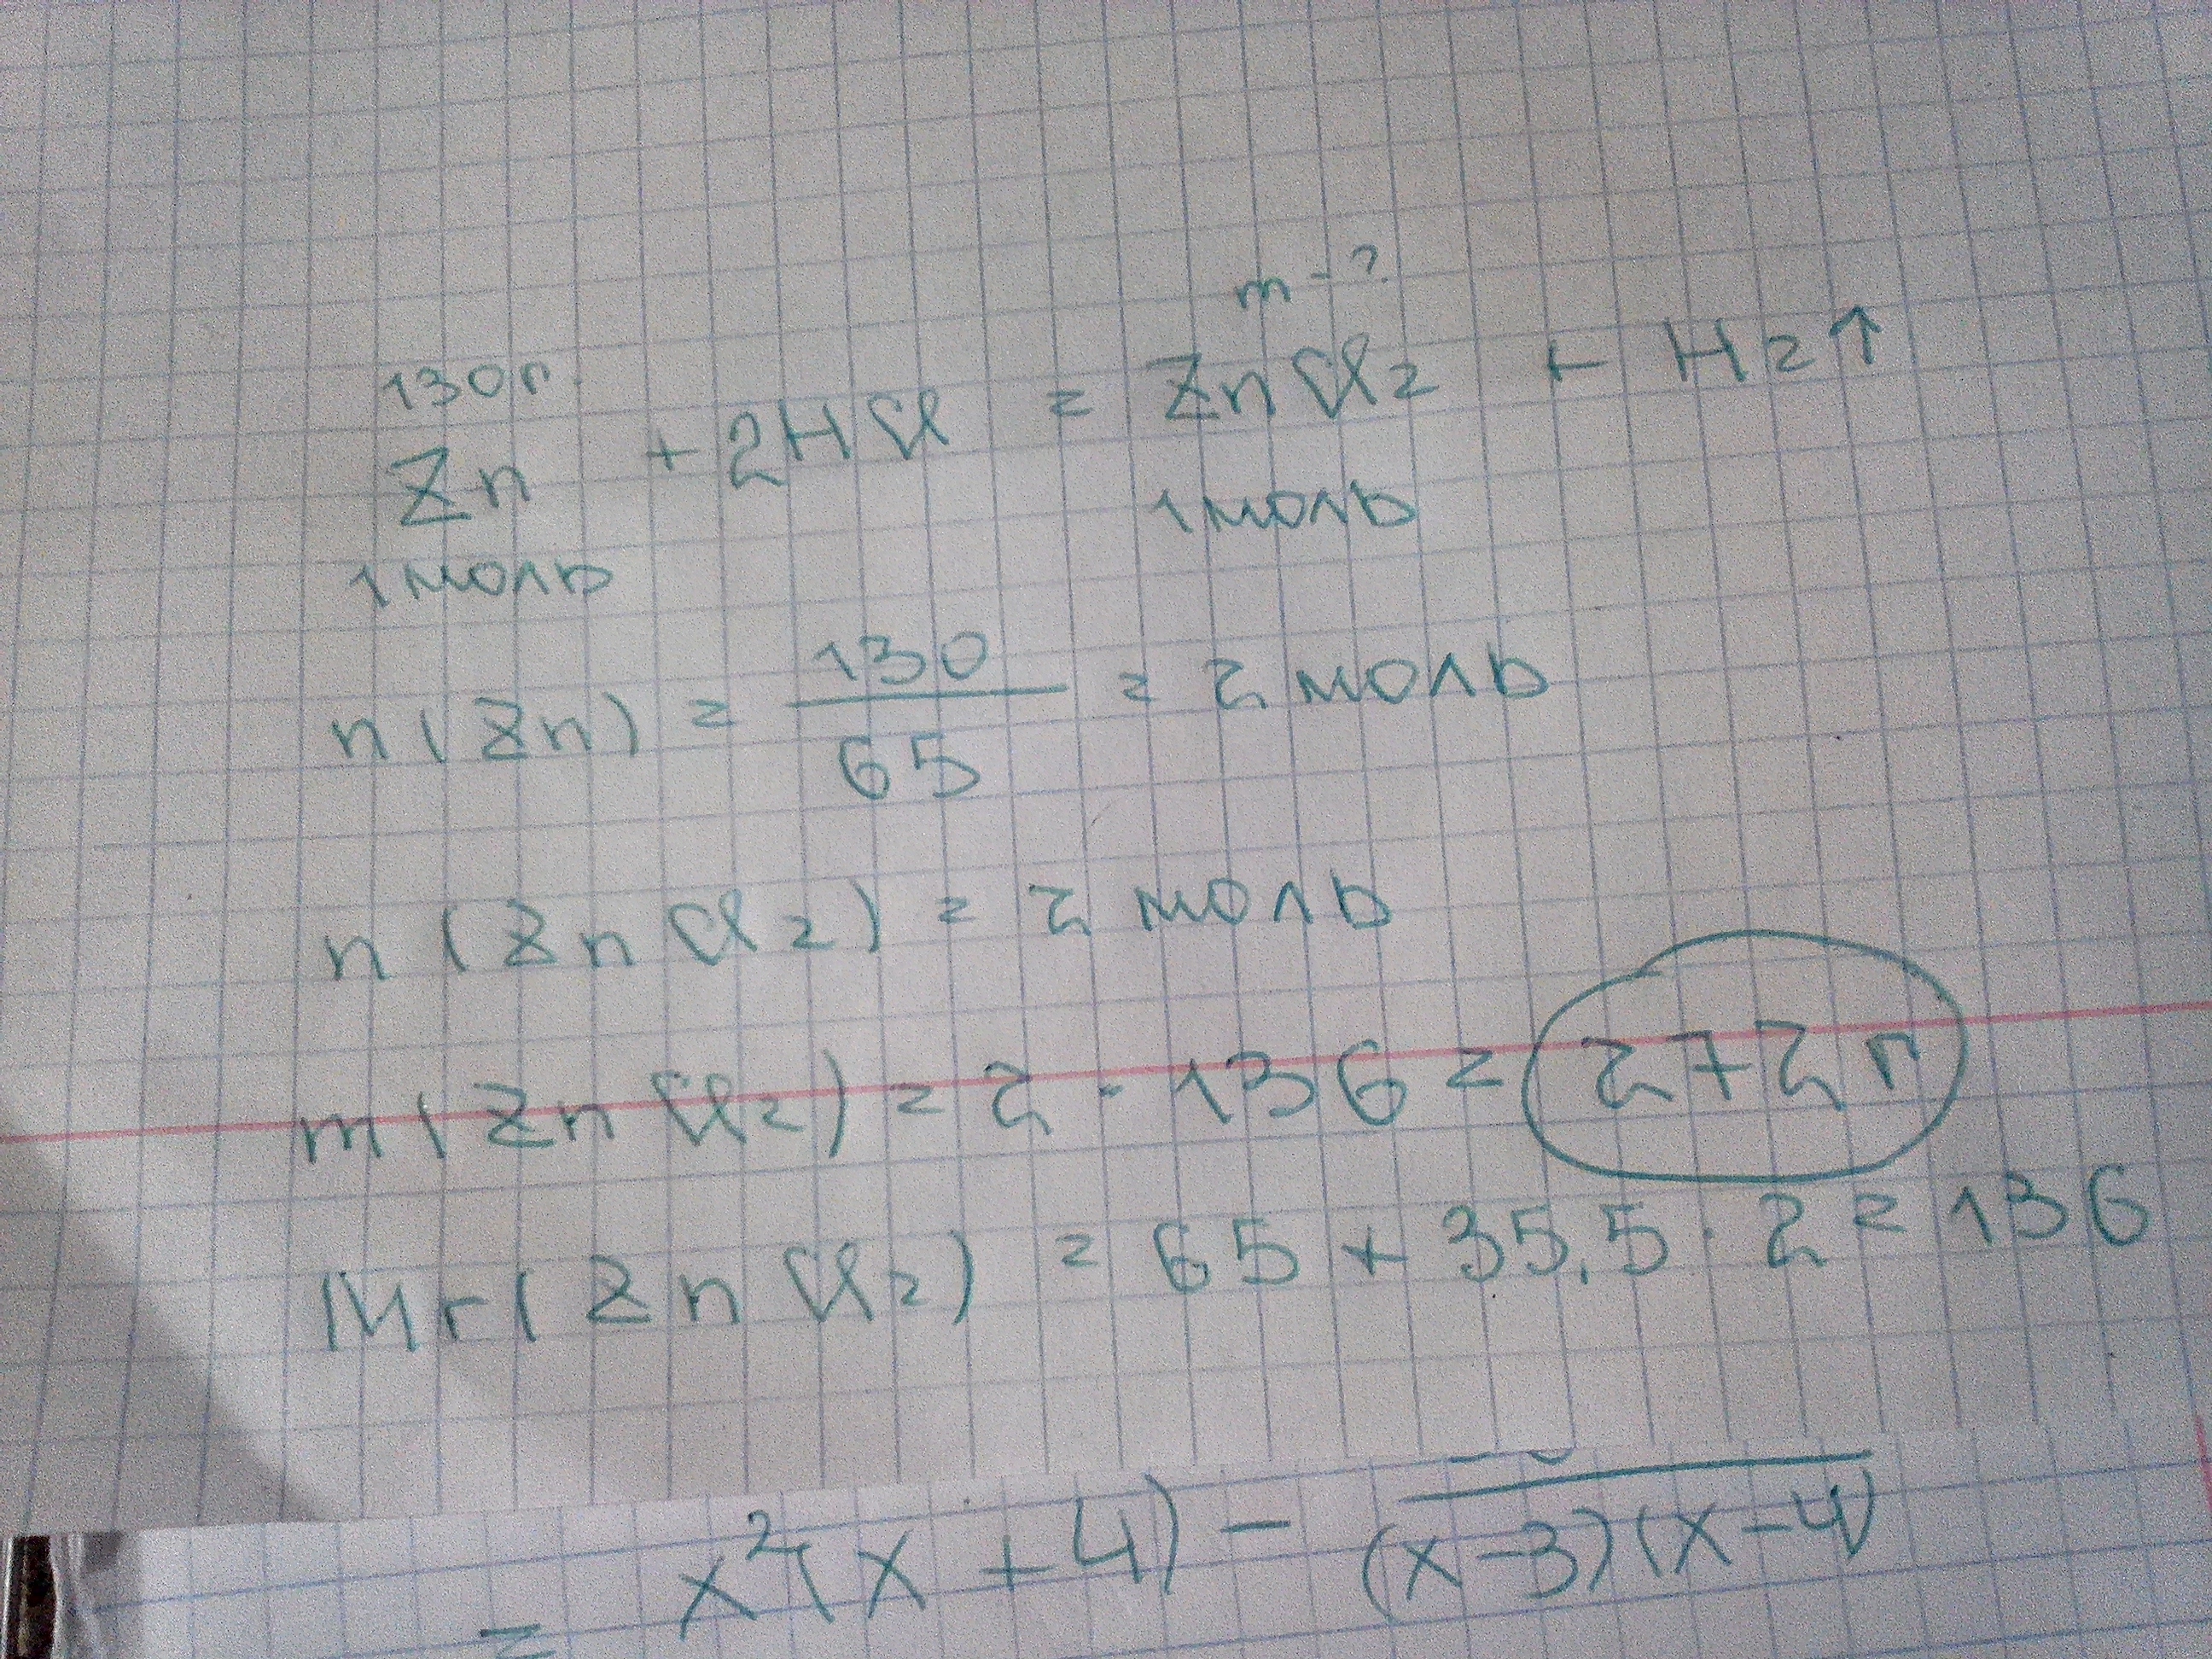 130г. m-?
Zn + 2HCl = ZnCl2 + H2↑
1моль 1моль
n(Zn) = 130/65 = 2 моль
n(ZnCl2) = 2 моль
m(ZnCl2) = 2 · 136 = 272 г
Mr(ZnCl2) = 65 + 35,5 · 2 = 136
= x²(x+4) - (x-3)(x-4)